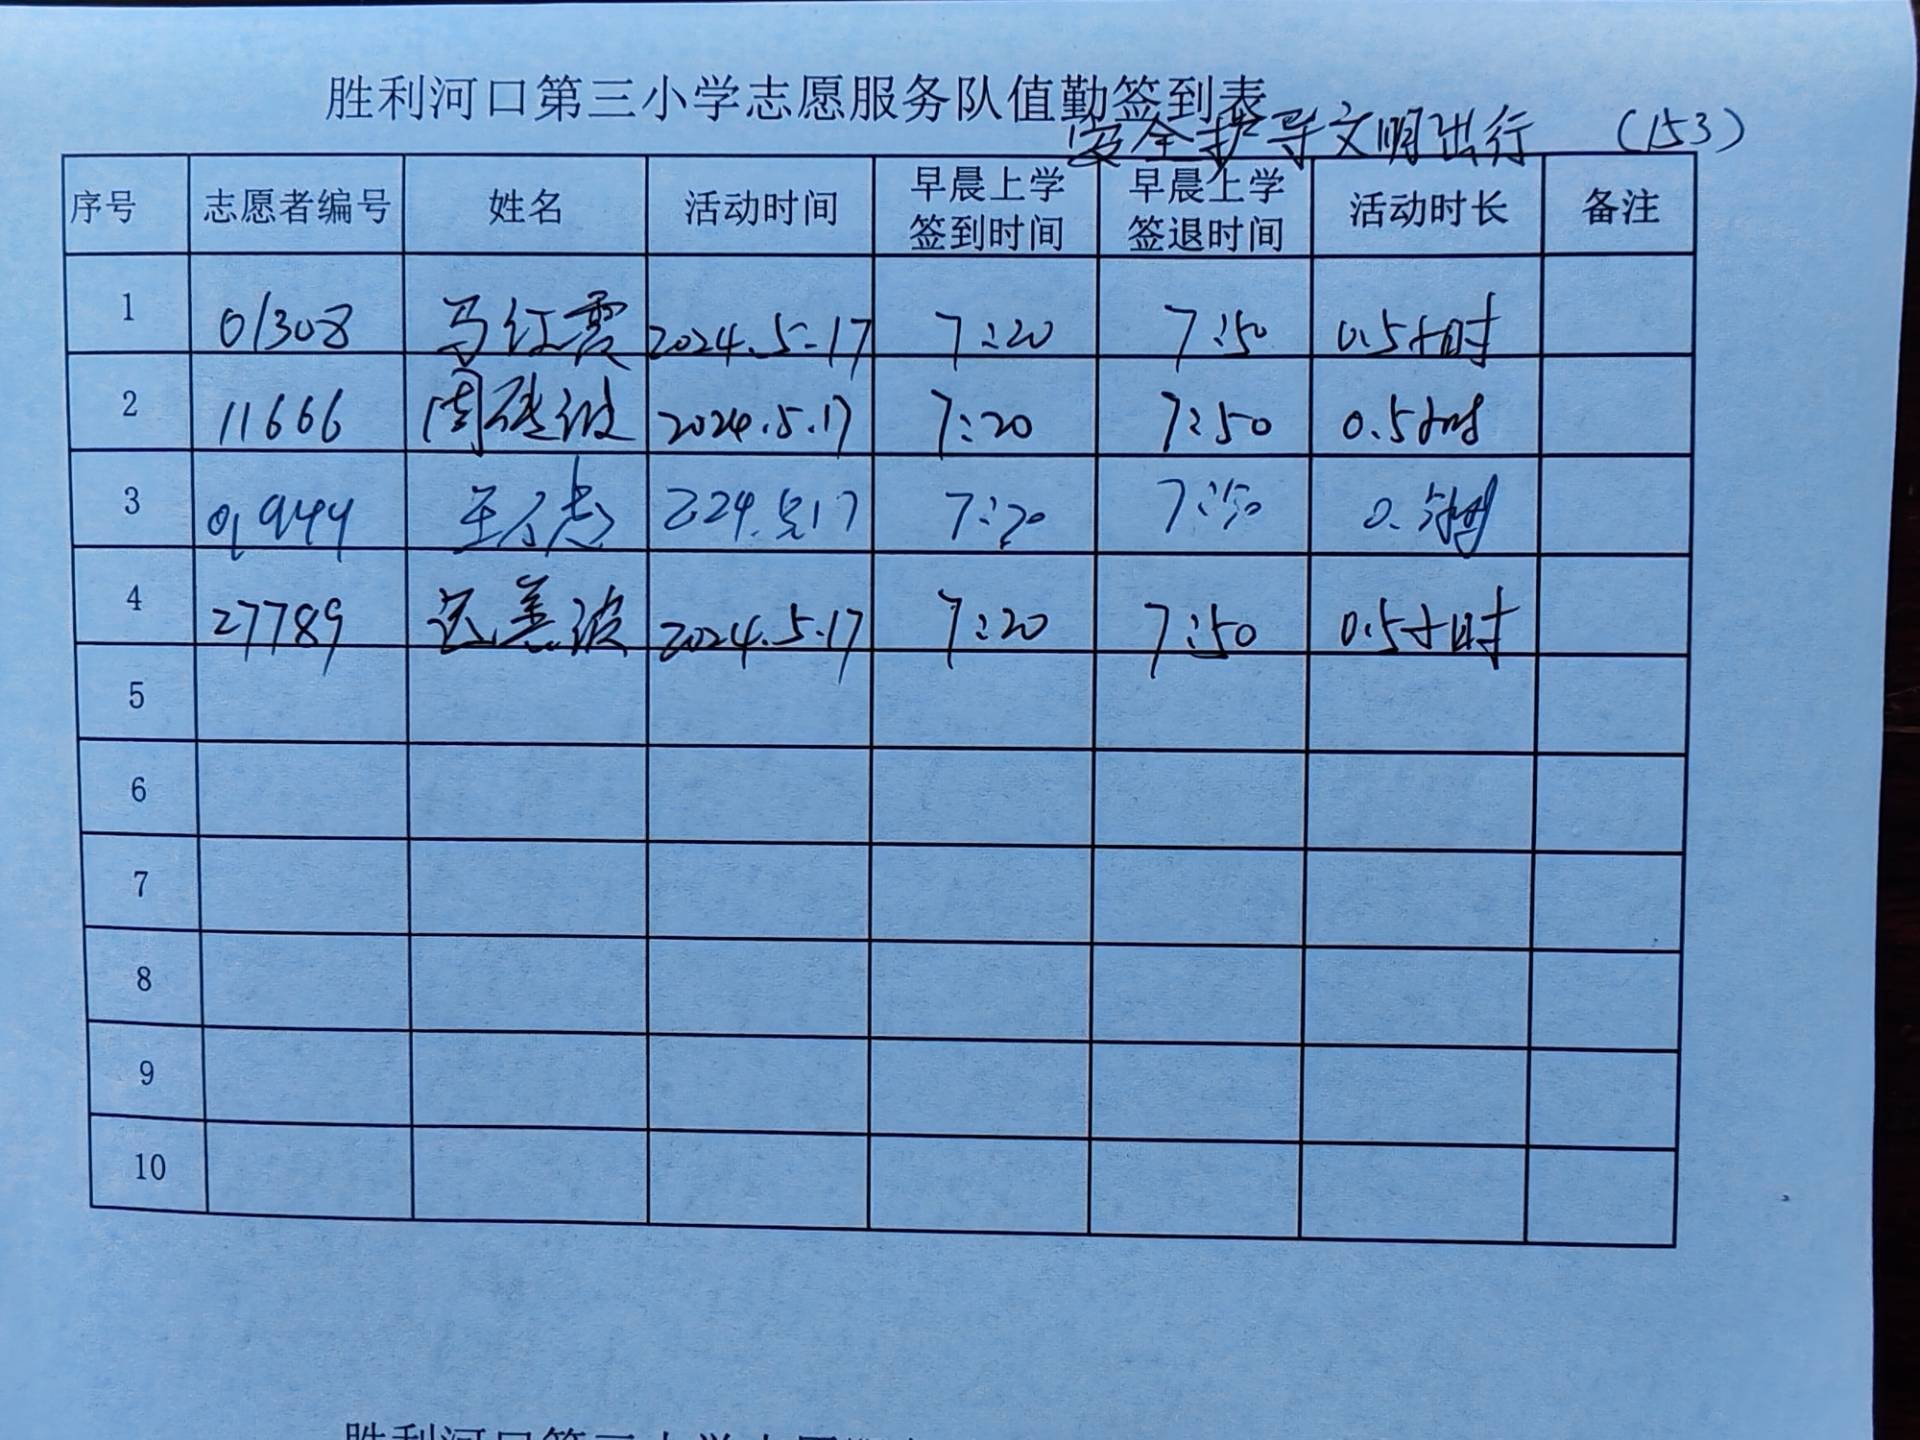 胜利河口第三小学志愿服务队值勤签到表
安全护导文明出行 (153)
序号 志愿者编号 姓名 活动时间 早晨上学签到时间 早晨上学签退时间 活动时长 备注
1 01308 马红霞 2024.5.17 7:20 7:50 0.5小时
2 11666 周 波 2024.5.17 7:20 7:50 0.5小时
3 01944 王 224.5.17 7:20 7:50 0.5小时
4 27789 波 2024.5.17 7:20 7:50 0.5小时
5
6
7
8
9
10
胜利河口第三小学志愿服